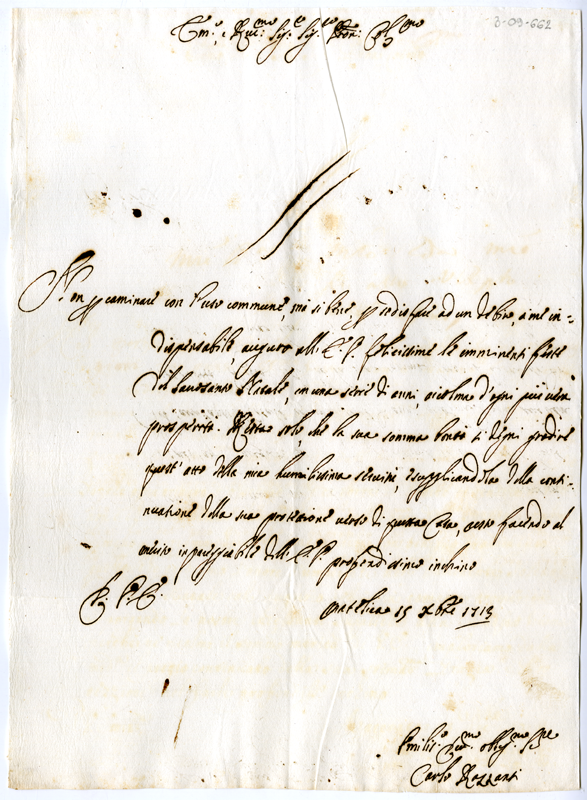 3-09-662
Em.o e R.mo Sig.e Sig.e P.ron Col.mo
Non p caminare con l'uso commune, mà si bene p sodisfare ad un debito, à me in=
dispensabile, auguro all' E.V. felicissime le imminenti feste
del Santissimo Natale, con una serie di anni, e colma d'ogni più vera
prosperità. Resta solo, che la sua somma bontà si degni gradire
quest' atto della mia humilissima servitù, e supplicandola della conti-
nuatione della sua protettione verso di questa Casa, resto facendo al
merito impareggiabile dell' E.V. profondissimo inchino
D. V. E.
Matelica 15 Xbre 1713
Humiliss.o Dev.mo Obblig.mo Ser.re
Carlo Razzanti